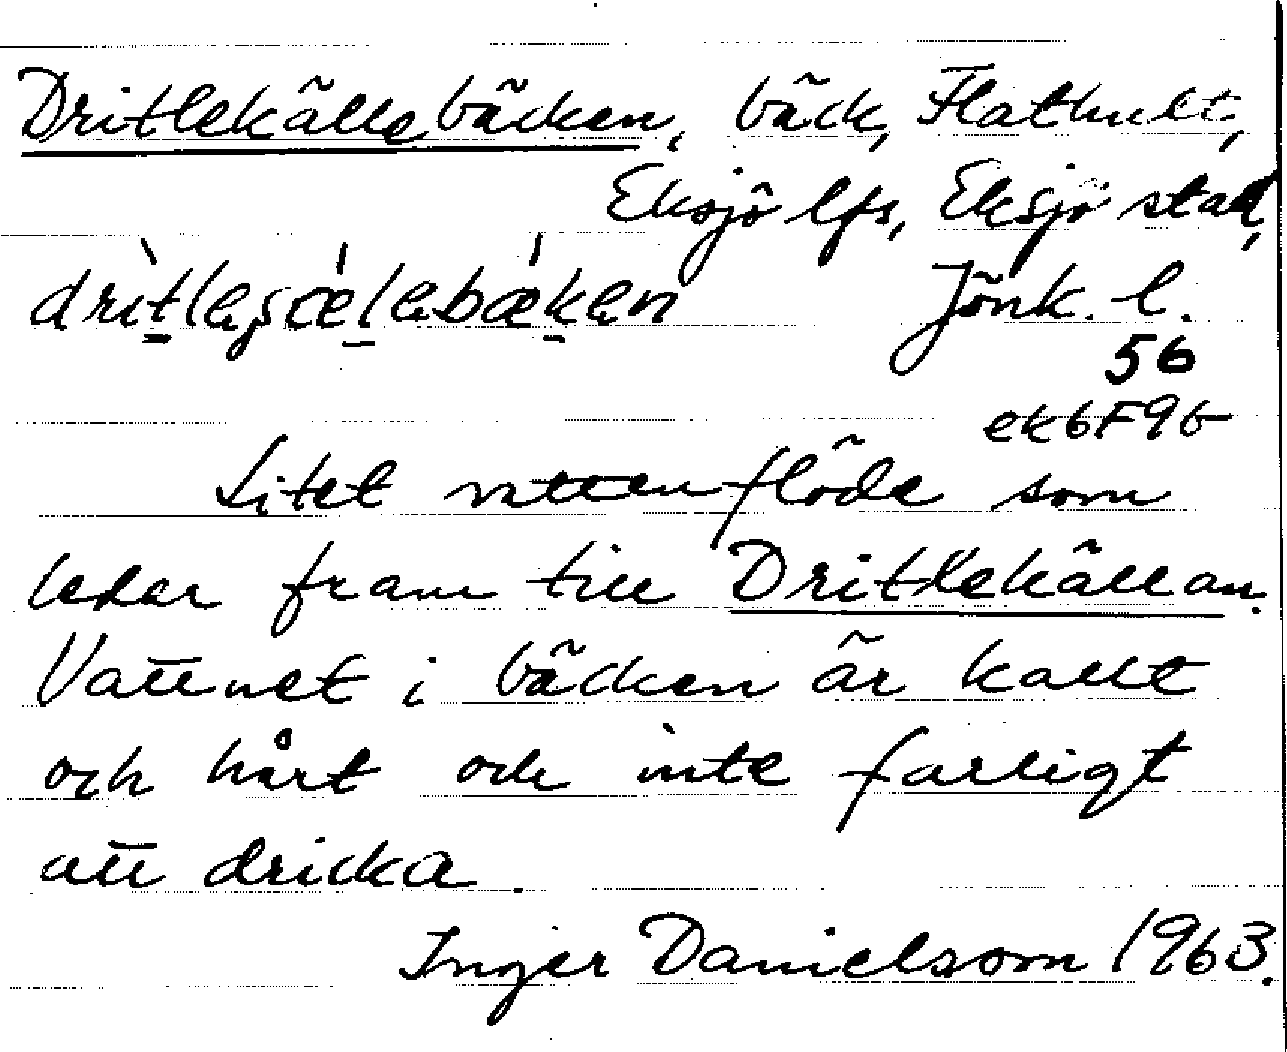 Dritlekällebäcken, bäck, Flathult,
Eksjö lfs, Eksjö stad,
Jönk. l.
56
ek6F9b
Litet vattenflöde som
leder fram till Dritlekällan.
Vattnet i bäcken är kallt
och hårt och inte farligt
att dricka.
Inger Danielsson 1963.